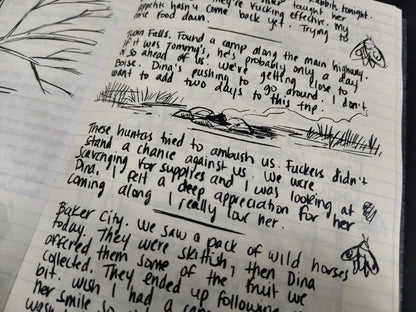 rabbit tonight.
taught her
they're fucking effective. My
hasn't come back yet. Trying to
food down.
Twin Falls. Found a camp along the main highway.
if it was Tommy's, he's probably only a day
or so ahead of us. We're getting close to
Boise. Dina's pushing to go around. I don't
want to add two days to this trip.
These hunters tried to ambush us. Fuckers didn't
stand a chance against us. We were
scavenging for supplies and I was looking at
Dina. I felt a deep appreciation for her
coming along. I really love her.
Baker City. We saw a pack of wild horses
today. They were skittish, then Dina
offered them some of the fruit we
collected. They ended up following
bit. Wish I had a
her smile so